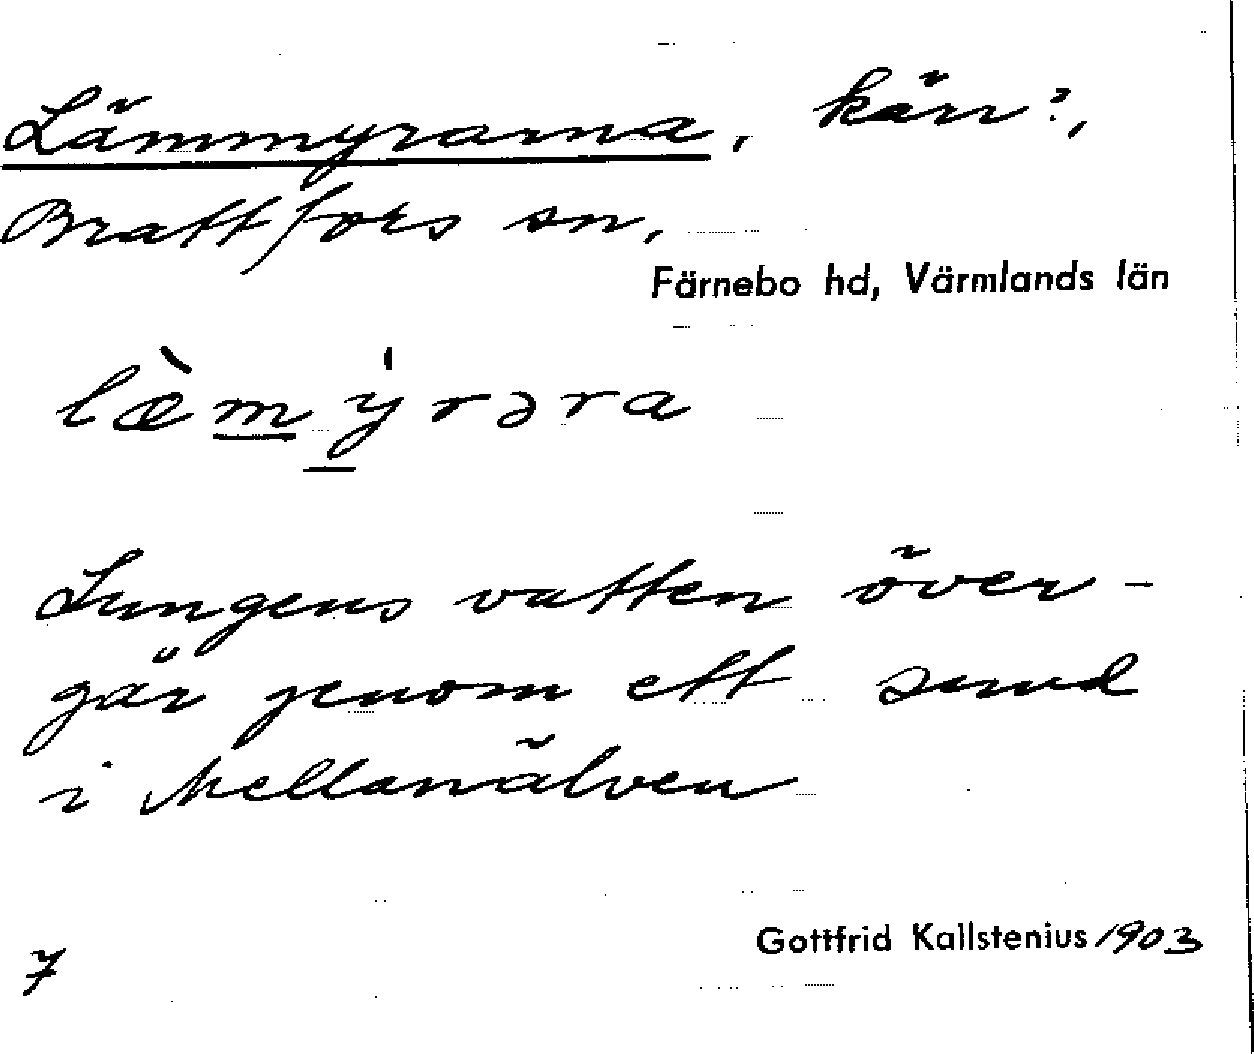 Lämmyrarna, kärr?,
Brattfors sn,
Färnebo hd, Värmlands län
læ̀mẏrəra
Lungens vatten över-
går genom ett sund
i Mellanälven
Gottfrid Kallstenius 1903
7